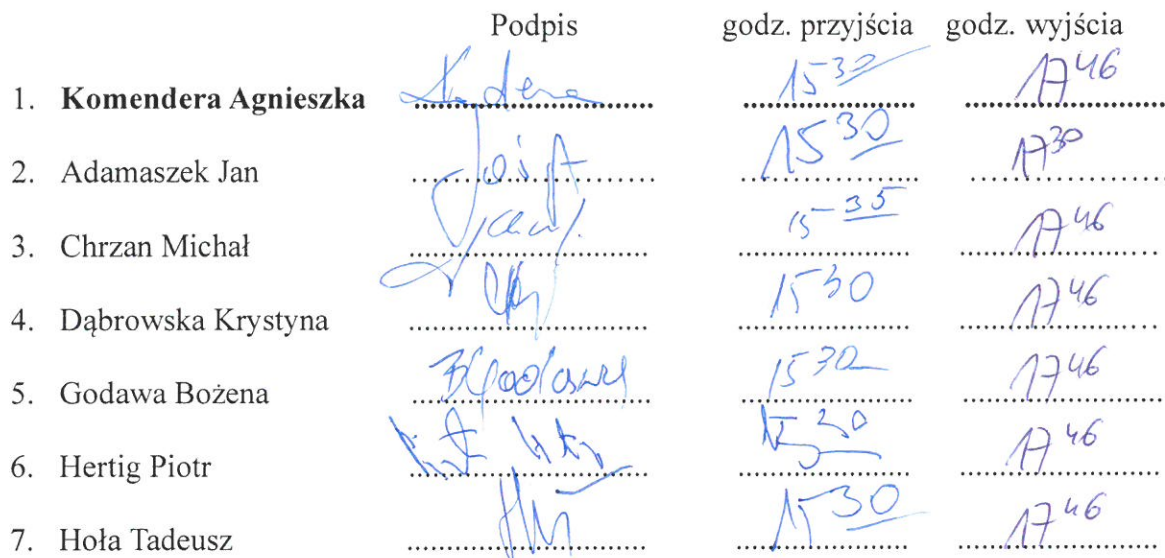 Podpis godz. przyjścia godz. wyjścia
1. Komendera Agnieszka 15 30 17 46
2. Adamaszek Jan 15 30 17 30
3. Chrzan Michał 15 35 17 46
4. Dąbrowska Krystyna 15 30 17 46
5. Godawa Bożena 15 30 17 46
6. Hertig Piotr 15 30 17 46
7. Hoła Tadeusz 15 30 17 46